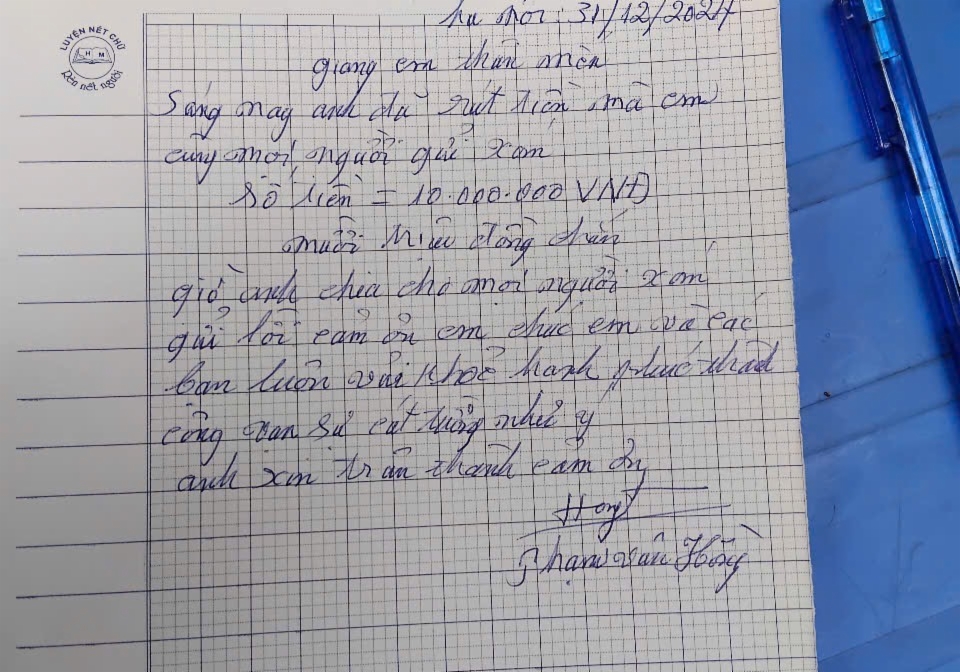 LUYỆN NÉT CHỮ
H M
Rèn nét người
hà nội: 31/12/2024
giang em thân mến
Sáng nay anh đã rút tiền mà em
cùng mọi người gửi xong
Số tiền = 10.000.000 VNĐ
mười triệu đồng chẵn
giờ anh chia cho mọi người xong
gửi lời cảm ơn em chúc em và các
bạn luôn vui khỏe hạnh phúc thành
công vạn sự cát tường như ý
anh xin trân thành cảm ơn
Hồng
Phạm văn Hồng